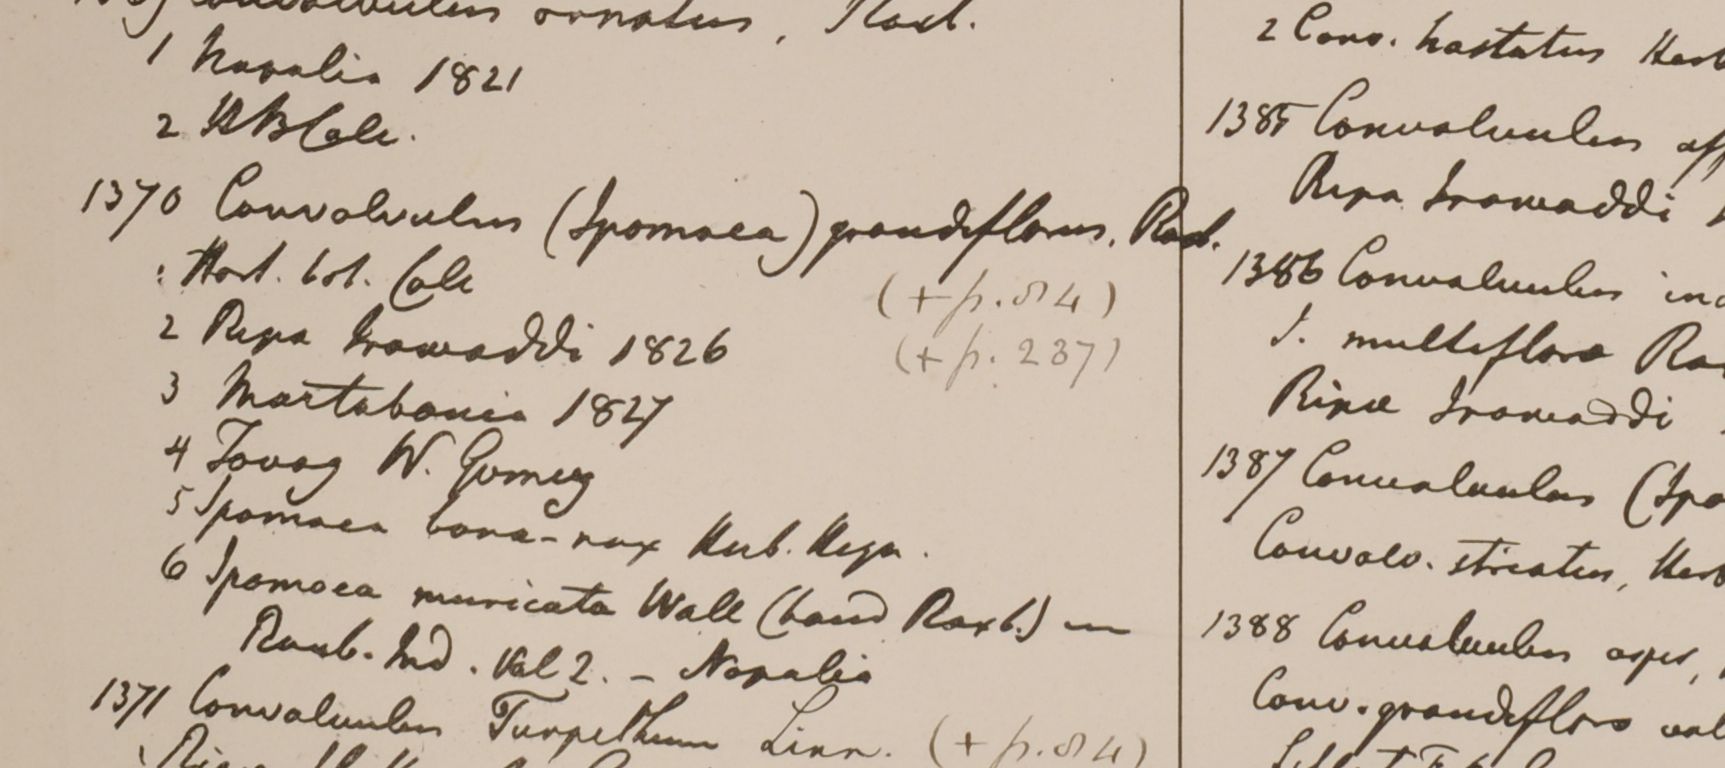 Convolvulus ornatus, Roxb.
1 Napalia 1821
2 HBCalc.
1370 Convolvulus (Ipomaea) grandiflorus, Roxb.
1 Hort. bot. Calc
(+ p. 84)
2 Ripa Irawaddi 1826
(+ p. 237)
3 Martabania 1827
4 Tavoy W. Gomez
5 Ipomaea bona-nox Herb. Heyn.
6 Ipomoea muricata Wall (haud Roxb.) in
Roxb. Ind. Vol 2. – Napalia
1371 Convolvulus Turpethum Linn. (+ p. 84)
2 Conv. hastatus Herb
1385 Convolvulus aff
Ripa Irawaddi
1386 Convolvulus
I. multiflora Rox
Ripae Irawaddi
1387 Convolvulus (Ipo
Convolv. striatus, Herb
1388 Convolvulus asper,
Conv. grandiflora